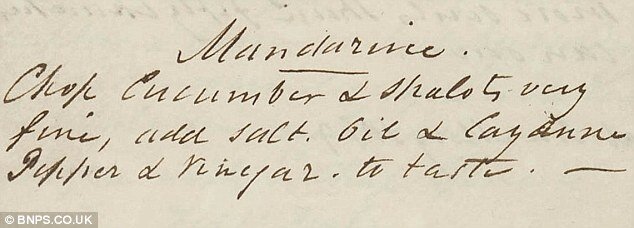 Mandarine.
Chop Cucumber & Shalots very
fine, add salt. Oil & Cayenne
Pepper & Vinegar. to taste. —
© BNPS.CO.UK